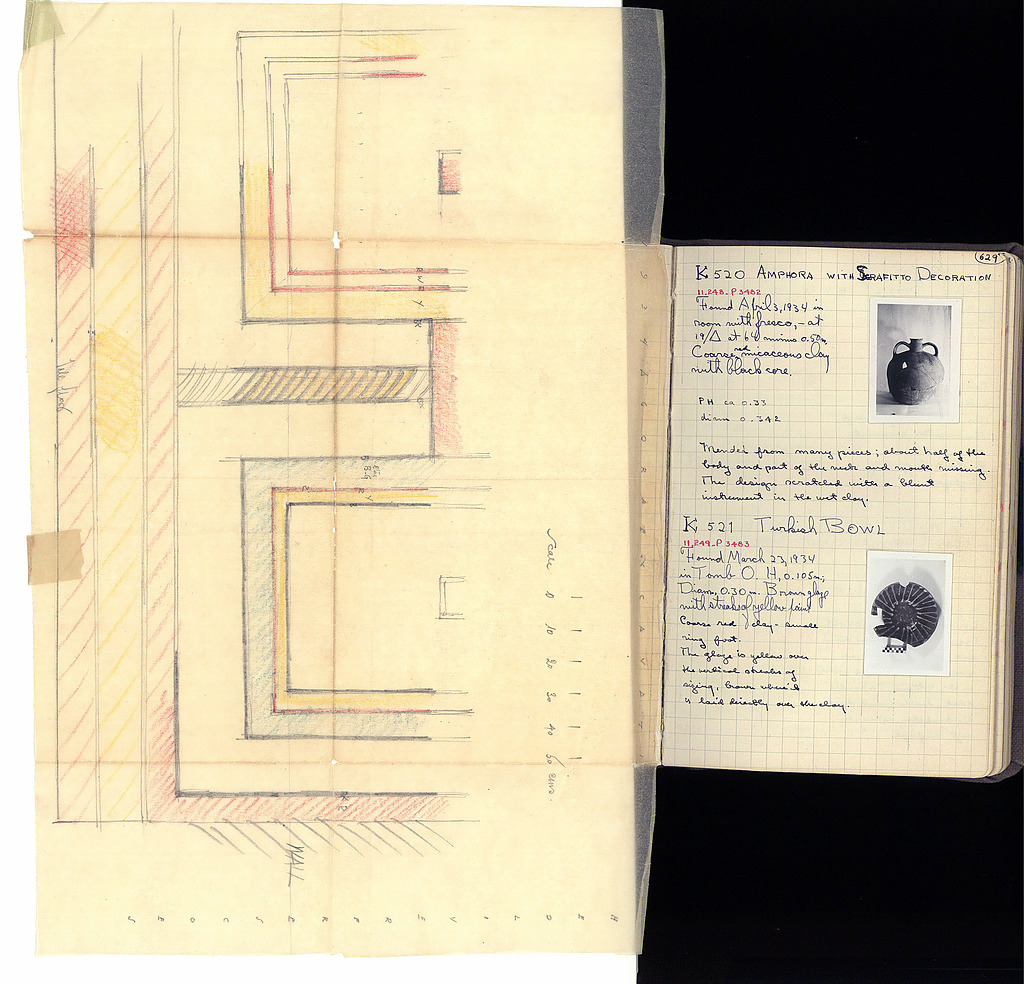 629
K 520 AMPHORA WITH SGRAFITTO DECORATION
11,248 - P 3482
Found April 3, 1934 in
room with fresco, - at
19/Δ at 64 minus 0.50m.
Coarse red micaceous clay
with black core.
PH ca 0.33
diam 0.342
Mended from many pieces; about half of the
body and part of the neck and mouth missing.
The design scratched with a blunt
instrument in the wet clay.
K 521 Turkish BOWL
11,249 - P 3483
Found March 23, 1934
in Tomb O. H, 0.105m;
Diam, 0.30 m. Brown glaze
with streaks of yellow
Coarse red clay - small
ring foot.
The glaze is yellow over
the vertical streaks of
sizing, brown where it
is laid directly over the clay.
Scale 0 10 20 30 40 50
WALL